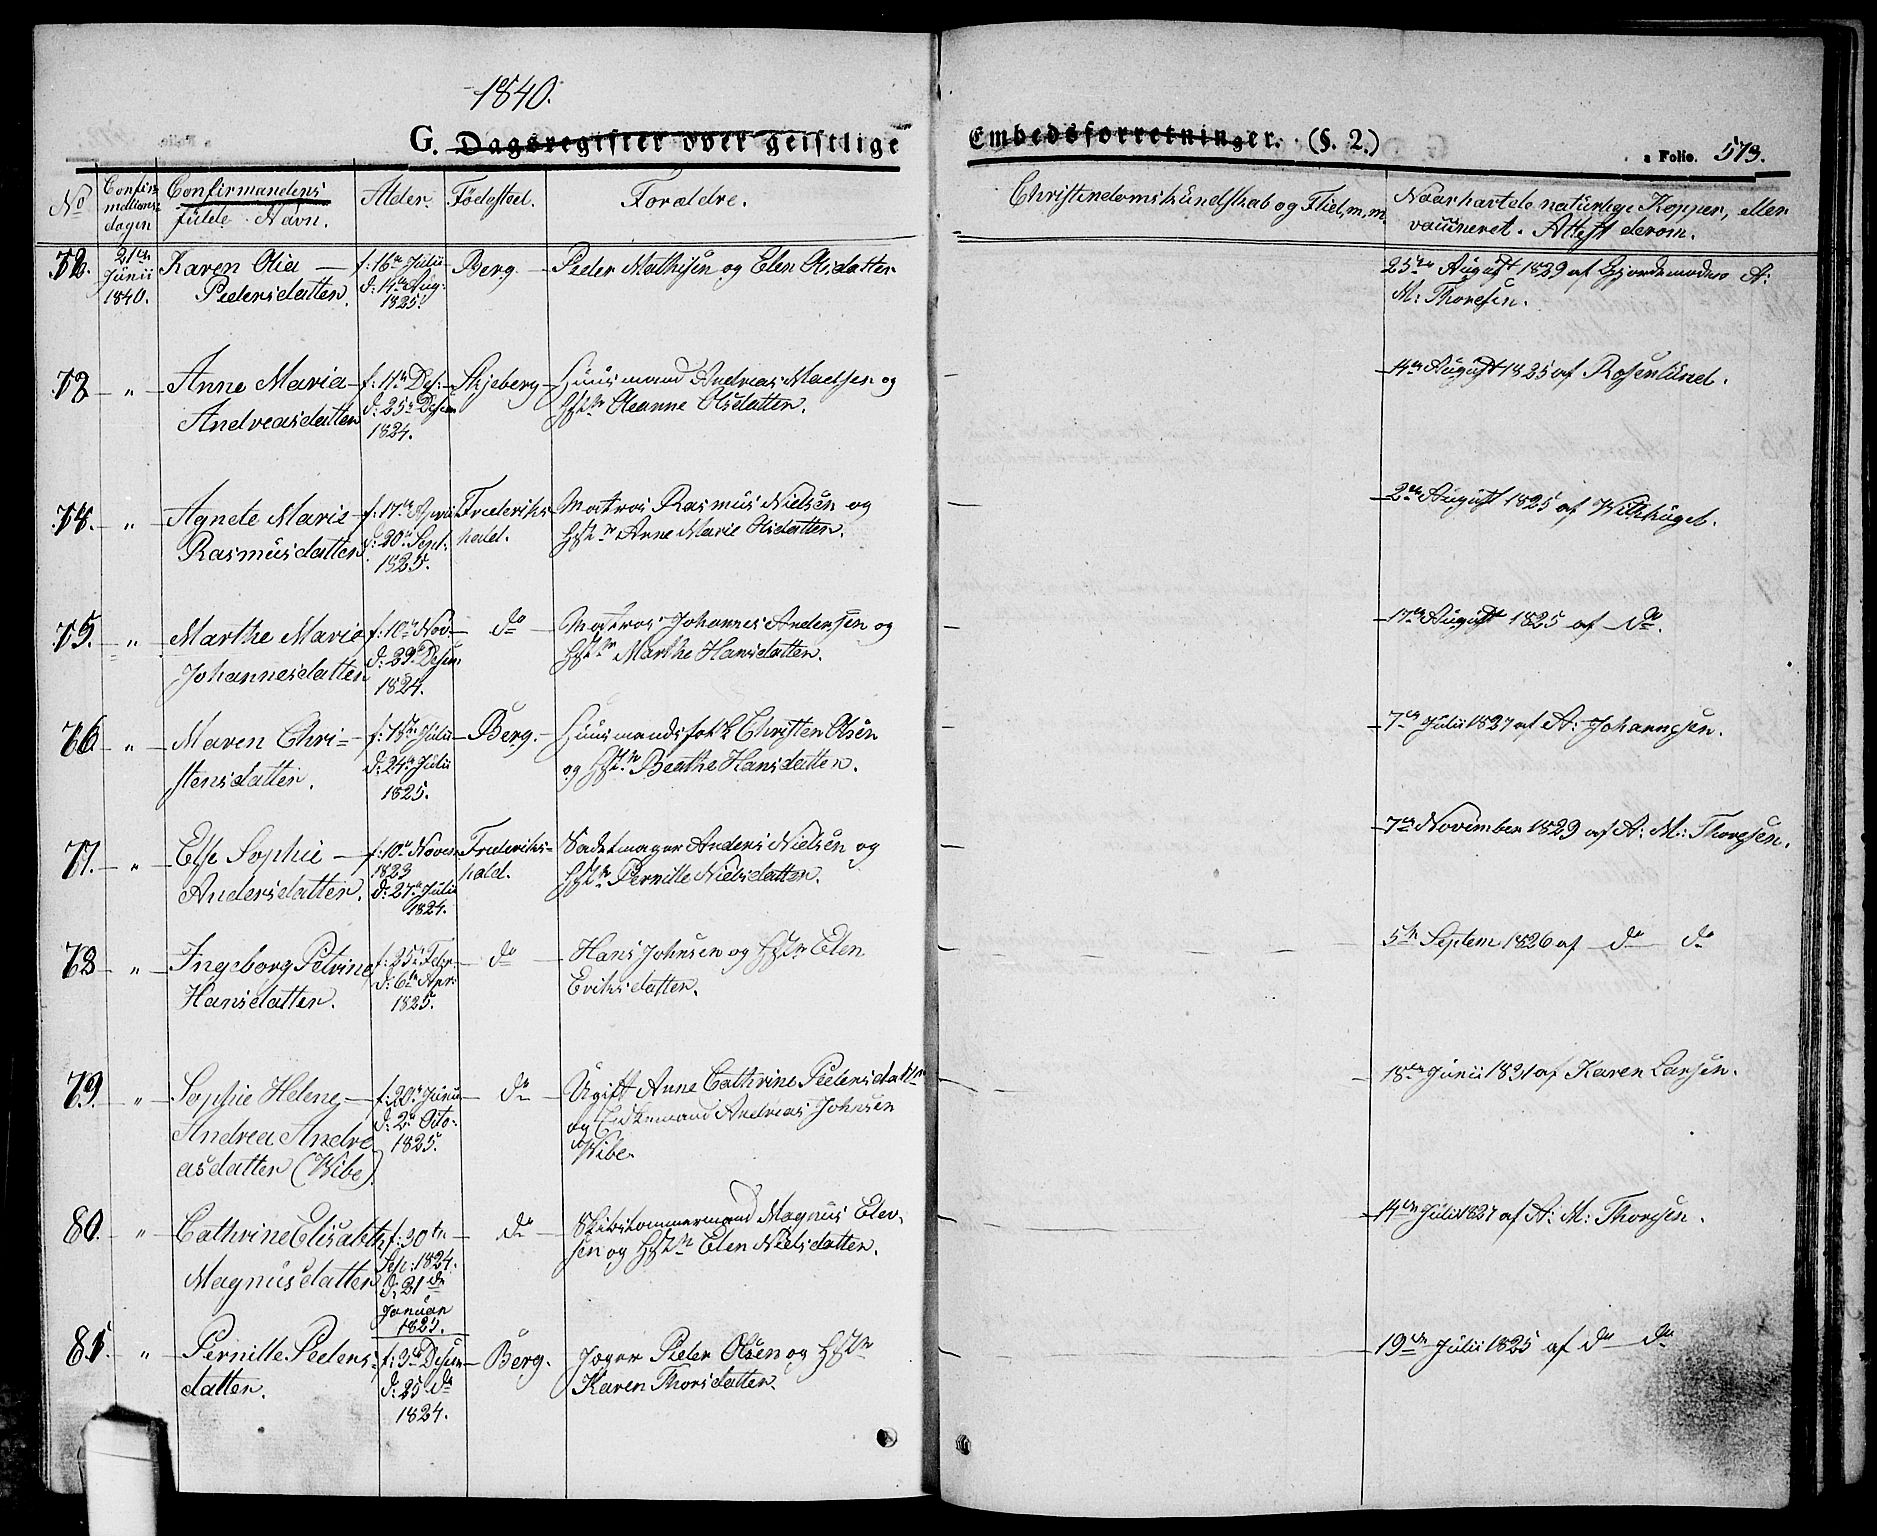 1840.
G. Dagsregister over geistlige Embedsforretninger. (§. 2.)
a Folio. 573.
No
Confir-
mations-
dagen
Confirmandens
fulde Navn.
Alder.
Fødested.
Forældre.
Christendomskundskab og Flid, m, m.
Naar havt de naturlige Kopper, eller
vaccineret. Attest derom.
21de
Junii
1840.
Karen Olia
Pedersdatter.
f: 16de Julii
d: 14de Aug:
1825.
Berg.
Peder Mathisen og Elen Olsdatter
25de August 1829 af Gjordemoder A:
M: Thoresen.
„
Anne Maria
Andreasdatter
f: 11te Des:
d: 25de Desem
1824.
Skjeberg
Huusmand Andreas Madsen og
Hstr Oleanne Olsdatter.
14de August 1825 af Rosenlund.
74. „
Agnete Marie
Rasmusdatter
f: 17de April
d: 20de Sept:
1825.
Frederiks
hald.
Matros Rasmus Nielsen og
Hstr Anne Marie Olsdatter.
2den August 1825 af Wilhügel.
75. „
Marthe Marie
Johannesdatter
f: 10de Nov
d: 29de Desem.
1824.
do
Matros Johannes Andersen og
Hstr Marthe Hansdatter.
17de August 1825 af do.
76 „
Maren Chri-
stensdatter.
f: 15de Julii
d: 24de Julii
1825.
Berg.
Huusmandsfolk Christen Olsen
og Hstr Beathe Hansdatter.
7de Julii 1827 af A: Johannsen.
77. „
Else Sophie
Andersdatter.
f: 10de Novem
1823
d: 27de Julii
1824.
Frederiks-
hald.
Sadelmager Anders Nielsen og
Hstr Pernille Nielsdatter.
7de November 1829 af A: M: Thoresen.
78 „
Ingeborg Petrine
Hansdatter.
f: 25de Febr:
d: 6te Apr:
1825.
do
Hans Johnsen og Hstr Elen
Eriksdatter.
5te Septem 1826 af do do
79. „
Sophie Helene
Andrea Andre
asdatter (Wibe)
f: 20de Junii
d: 2de Octo-
1825.
do
Ugift Anne Cathrine Pedersdatter
og Enkemand Andreas Johnsen
Wibe
18de Junii 1831 af Karen Larsen.
80. „
Cathrine Elisabeth
Magnusdatter
f: 30te
Sep: 1824.
d: 21de
Januar
1825.
do
Skibstømmermand Magnus Elev-
sen og Hstr Elen Nielsdatter.
14de Julii 1827 af A: M: Thoresen.
81. „
Pernille Peders-
datter.
f: 3de Desem
d: 25 do
1824.
Berg.
Jæger Peder Olsen og Hstr
Karen Thorsdatter
19de Julii 1825 af do do